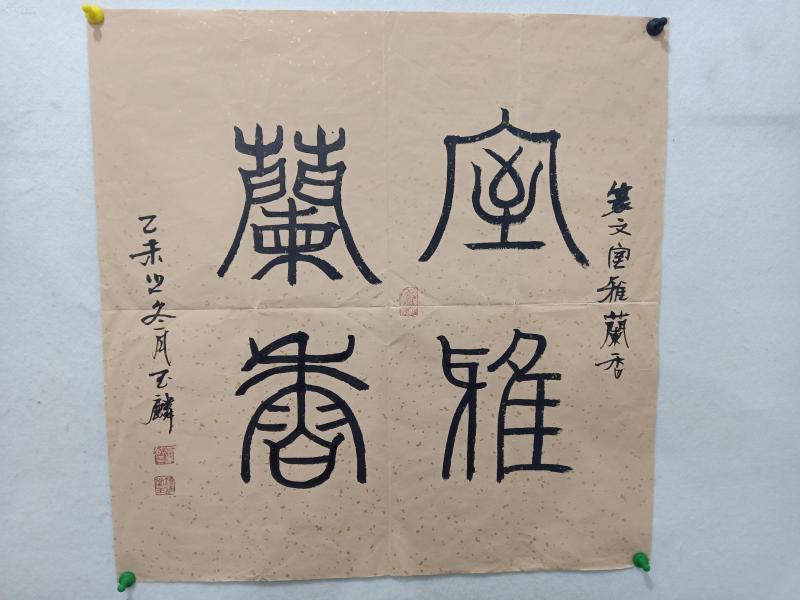 篆文室雅蘭香
室雅
蘭香
乙未之冬月玉麟